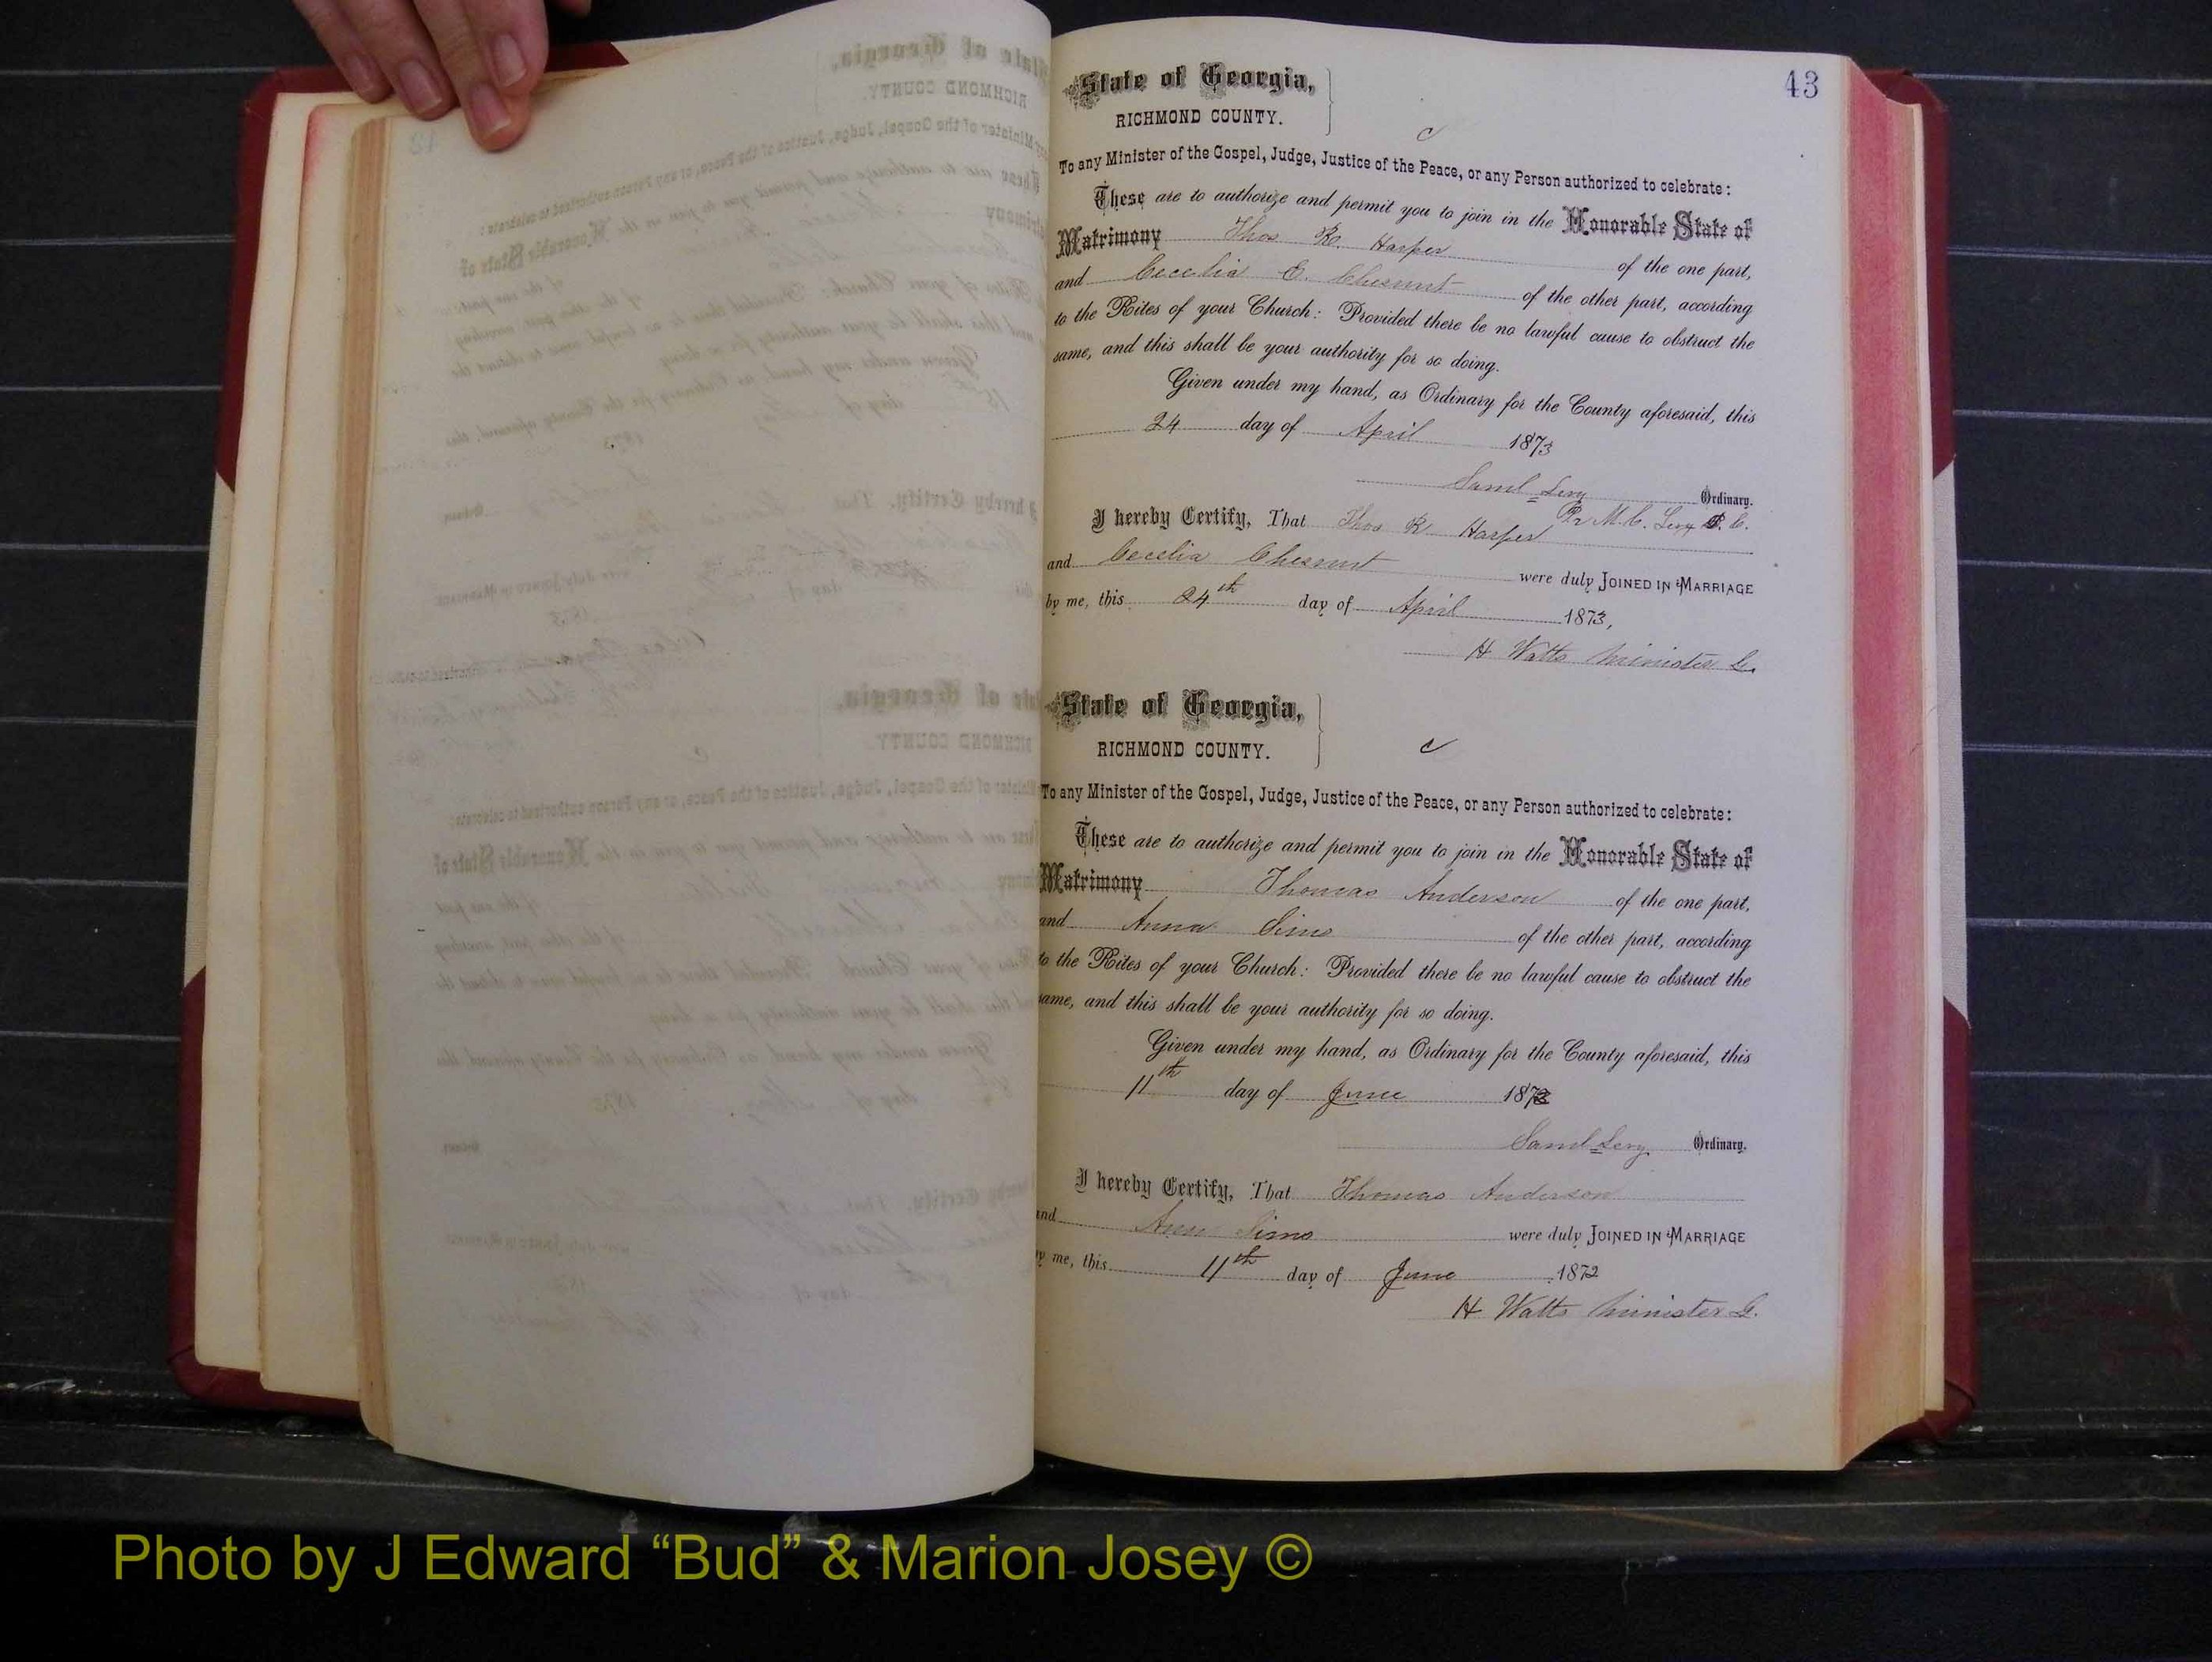 43
State of Georgia,
RICHMOND COUNTY.
c
To any Minister of the Gospel, Judge, Justice of the Peace, or any Person authorized to celebrate:
These are to authorize and permit you to join in the Honorable State of
Matrimony Thos R. Harper of the one part,
and Cecelia E. Chesnut of the other part, according
to the Rites of your Church: Provided there be no lawful cause to obstruct the
same, and this shall be your authority for so doing.
Given under my hand, as Ordinary for the County aforesaid, this
24 day of April 1873
Saml Levy Ordinary.
Pr M. C. Levy D. C.
I hereby Certify, That Thos R Harper
and Cecelia Chesnut were duly JOINED IN MARRIAGE
by me, this 24th day of April 1873,
H Watts Minister G.
State of Georgia,
RICHMOND COUNTY.
c
To any Minister of the Gospel, Judge, Justice of the Peace, or any Person authorized to celebrate:
These are to authorize and permit you to join in the Honorable State of
Matrimony Thomas Anderson of the one part,
and Anna Sims of the other part, according
to the Rites of your Church: Provided there be no lawful cause to obstruct the
same, and this shall be your authority for so doing.
Given under my hand, as Ordinary for the County aforesaid, this
11th day of June 1872
Saml Levy Ordinary.
I hereby Certify, That Thomas Anderson
and Ann Sims were duly JOINED IN MARRIAGE
by me, this 11th day of June 1872
H Watts Minister G.
Photo by J Edward “Bud” & Marion Josey ©